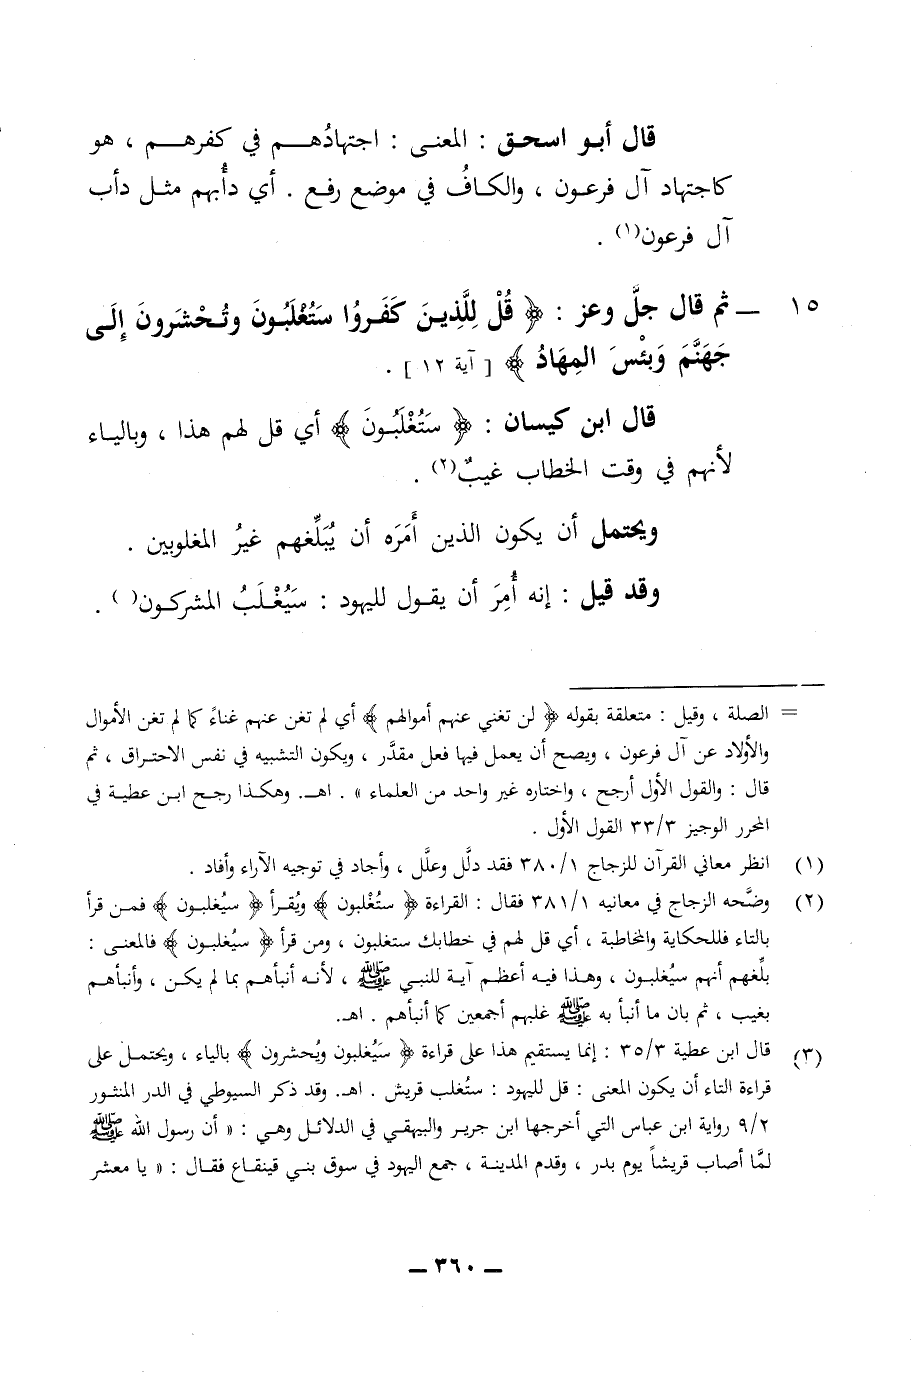 قال أبو اسحق : المعنى : اجتهادُهـم في كفرهـم ، هو
كاجتهاد آل فرعون ، والكافُ في موضع رفع . أي دأُبهم مثل دأب
آل فرعون(١) .
١٥ ــ ثم قال جلَّ وعز : ﴿ قُلْ لِلَّذِينَ كَفَروُا سَتُغْلَبُونَ وتُحْشَرونَ إِلَى
جَهَنَّمَ وَبئْسَ المِهَادُ ﴾ [ آية ١٢ ] .
قال ابن كيسان : ﴿ سَتُغْلَبُونَ ﴾ أي قل لهم هذا ، وبالياء
لأنهم في وقت الخطاب غيبٌ(٢) .
ويحتمل أن يكون الذين أَمَرَه أن يُبَلِّغهم غيرُ المغلوبين .
وقد قيل : إنه أُمِرَ أن يقول لليهود : سَيُغْلَبُ المشركون( ) .
= الصلة ، وقيل : متعلقة بقوله ﴿ لن تغني عنهم أموالهم ﴾ أي لم تغن عنهم غناءً كما لم تغن الأموال
والأولاد عن آل فرعون ، ويصح أن يعمل فيها فعل مقدَّر ، ويكون التشبيه في نفس الاحتراق ، ثم
قال : والقول الأول أرجح ، واختاره غير واحد من العلماء » . اهـ. وهكذا رجح ابن عطية في
المحرر الوجيز ٣٣/٣ القول الأول .
(١) انظر معاني القرآن للزجاج ٣٨٠/١ فقد دلَّل وعلَّل ، وأجاد في توجيه الآراء وأفاد .
(٢) وضَّحه الزجاج في معانيه ٣٨١/١ فقال : القراءة ﴿ ستُغْلبون ﴾ ويُقرأ ﴿ سيُغلبون ﴾ فمن قرأ
بالتاء فللحكاية والمخاطبة ، أي قل لهم في خطابك ستغلبون ، ومن قرأ ﴿ سيُغلبون ﴾ فالمعنى :
بلِّغهم أنهم سيُغلبون ، وهذا فيه أعظم آية للنبي ﷺ ، لأنه أنبأهم بما لم يكن ، وأنبأهم
بغيب ، ثم بان ما أنبأ به ﷺ غلبهم أجمعين كما أنبأهم . اهـ.
(٣) قال ابن عطية ٣٥/٣ : إنما يستقيم هذا على قراءة ﴿ سَيُغلبون ويُحشرون ﴾ بالياء ، ويحتمل على
قراءة التاء أن يكون المعنى : قل لليهود : ستُغلب قريش . اهـ. وقد ذكر السيوطي في الدر المنثور
٩/٢ رواية ابن عباس التي أخرجها ابن جرير والبيهقي في الدلائل وهي : « أن رسول الله ﷺ
لمَّا أصاب قريشاً يوم بدر ، وقدم المدينة ، جمع اليهود في سوق بني قينقاع فقال : « يا معشر
ــ ٣٦٠ ــ